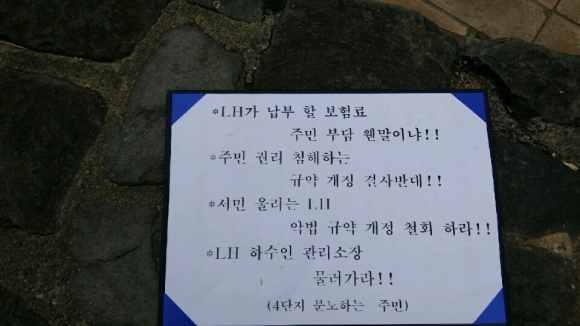 *LH가 납부 할 보험료
주민 부담 웬말이냐!!
*주민 권리 침해하는
규약 개정 결사반대!!
*서민 울리는 LH
악법 규약 개정 철회 하라!!
*LH 하수인 관리소장
물러가라!!
(4단지 분노하는 주민)